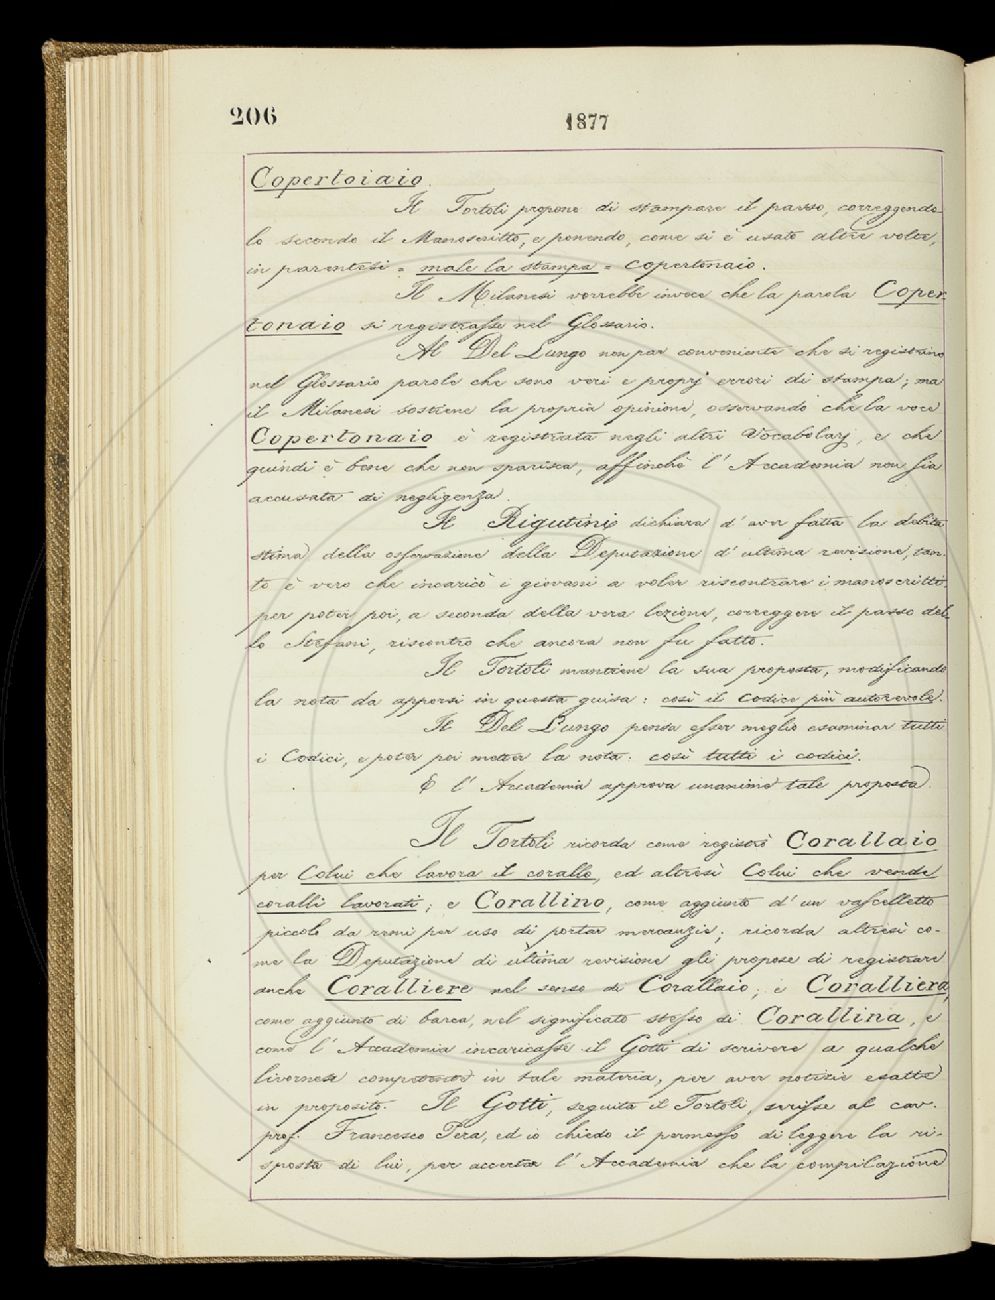 206
1877
Copertoiaio.
Il Tortoli propone di stampare il passo, correggendo-
lo secondo il Manoscritto, e ponendo, come si è usato altre volte,
in parentesi = male la stampa = copertonaio.
Il Milanesi vorrebbe invece che la parola Coper-
tonaio si registrasse nel Glossario.
Al Del Lungo non par conveniente che si registrino
nel Glossario parole che sono veri e proprj errori di stampa; ma
il Milanesi sostiene la propria opinione, osservando che la voce
Copertonaio è registrata negli altri Vocabolarj, e che
quindi è bene che non sparisca, affinchè l'Accademia non sia
accusata di negligenza.
Il Rigutini dichiara d'aver fatta la debita
stima della osservazione della Deputazione d'ultima revisione, tan-
to è vero che incaricò i giovani a voler riscontrare i manoscritti,
per poter poi, a seconda della vera lezione, correggere il passo del-
lo Stefani, riscontro che ancora non fu fatto.
Il Tortoli mantiene la sua proposta, modificando
la nota da apporsi in questa guisa: così il codice più autorevole.
Il Del Lungo pensa esser meglio esaminar tutti
i Codici, e poter poi metter la nota: così tutti i codici.
E l'Accademia approva unanime tale proposta.
Il Tortoli ricorda come registrò Corallaio
per Colui che lavora il corallo, ed altresì Colui che vende
coralli lavorati; e Corallino, come aggiunto d'un vascelletto
piccolo da remi per uso di portar mercanzie; ricorda altresì co-
me la Deputazione di ultima revisione gli propose di registrare
anche Coralliere nel senso di Corallaio; e Coralliera,
come aggiunto di barca, nel significato stesso di Corallina, e
come l'Accademia incaricasse il Gotti di scrivere a qualche
livornese competente in tale materia, per aver notizie esatte
in proposito. Il Gotti, seguita il Tortoli, scrisse al cav.
prof. Francesco Pera, ed io chiedo il permesso di leggere la ri-
sposta di lui, per accertar l'Accademia che la compilazione